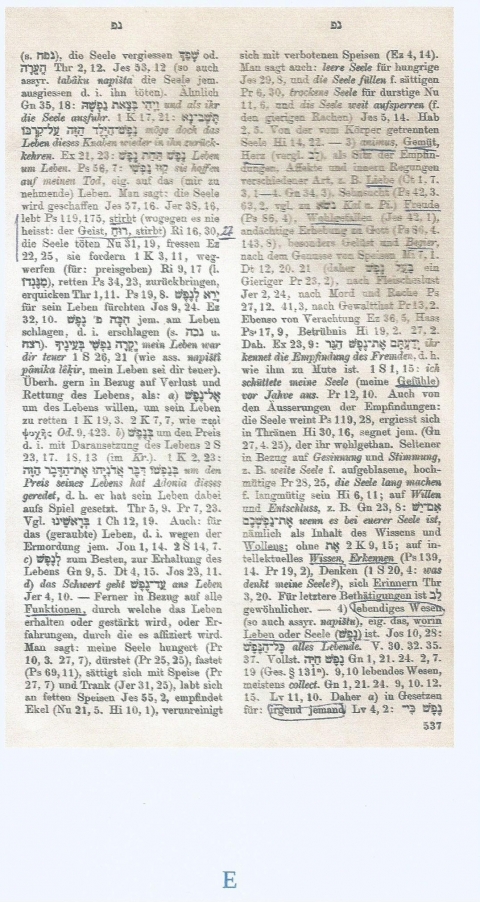 נפ
נפ
(s. נפח), die Seele vergiessen שָׁפַךְ od.
הֶעֱרָה Thr 2, 12. Jes 53, 12 (so auch
assyr. tabâku napišta die Seele jem.
ausgiessen d. i. ihn töten). Ähnlich
Gn 35, 18: וַיְהִי בְּצֵאת נַפְשָׁהּ und als ihr
die Seele ausfuhr. 1 K 17, 21: תָּשָׁב־נָא
נֶפֶשׁ־הַיֶּלֶד הַזֶּה עַל־קִרְבּוֹ möge doch das
Leben dieses Knaben wieder in ihn zurück-
kehren. Ex 21, 23: נֶפֶשׁ תַּחַת נָפֶשׁ Leben
um Leben. Ps 56, 7: קִוּוּ נַפְשִׁי sie hoffen
auf meinen Tod, eig. auf das (mir zu
nehmende) Leben. Man sagt: die Seele
wird geschaffen Jes 57, 16. Jer 38, 16,
lebt Ps 119, 175, stirbt (wogegen es nie
heisst: der Geist, רוּחַ, stirbt) Ri 16, 30,
die Seele töten Nu 31, 19, fressen Ez
22, 25, sie fordern 1 K 3, 11, weg-
werfen (für: preisgeben) Ri 9, 17 (l.
מִנֶּגְדּוֹ), retten Ps 34, 23, zurückbringen,
erquicken Thr 1, 11. Ps 19, 8. יָרֵא לְנֶפֶשׁ
für sein Leben fürchten Jos 9, 24. Ez
32, 10. הִכָּה פ׳ נֶפֶשׁ jem. am Leben
schlagen, d. i. erschlagen (s. נכה u.
רצח). יָקְרָה נַפְשִׁי בְּעֵינֶיךָ mein Leben war
dir teuer 1 S 26, 21 (wie ass. napišti
pânika lêḳir, mein Leben sei dir teuer).
Überh. gern in Bezug auf Verlust und
Rettung des Lebens, als: a) אֶל־נֶפֶשׁ
um des Lebens willen, um sein Leben
zu retten 1 K 19, 3. 2 K 7, 7, wie περὶ
ψυχῆς Od. 9, 423. b) בְּנֶפֶשׁ um den Preis
d. i. mit Daransetzung des Lebens 2 S
23, 17. 18, 13 (im Kr.). 1 K 2, 23:
בְנַפְשׁוֹ דִּבֶּר אֲדֹנִיָּהוּ אֶת־הַדָּבָר הַזֶּה um den
Preis seines Lebens hat Adonia dieses
geredet, d. h. er hat sein Leben dabei
aufs Spiel gesetzt. Thr 5, 9. Pr 7, 23.
Vgl. בְּרָאשֵׁינוּ 1 Ch 12, 19. Auch: für
das (geraubte) Leben, d. i. wegen der
Ermordung jem. Jon 1, 14. 2 S 14, 7.
c) לְנֶפֶשׁ zum Besten, zur Erhaltung des
Lebens Gn 9, 5. Dt 4, 15. Jos 23, 11.
d) das Schwert geht עַד־נֶפֶשׁ ans Leben
Jer 4, 10. — Ferner in Bezug auf alle
Funktionen, durch welche das Leben
erhalten oder gestärkt wird, oder Er-
fahrungen, durch die es affiziert wird.
Man sagt: meine Seele hungert (Pr
10, 3. 27, 7), dürstet (Pr 25, 25), fastet
(Ps 69, 11), sättigt sich mit Speise (Pr
27, 7) und Trank (Jer 31, 25), labt sich
an fetten Speisen Jes 55, 2, empfindet
Ekel (Nu 21, 5. Hi 10, 1), verunreinigt
sich mit verbotenen Speisen (Ez 4, 14).
Man sagt auch: leere Seele für hungrige
Jes 29, 8, und die Seele füllen f. sättigen
Pr 6, 30, trockene Seele für durstige Nu
11, 6, und die Seele weit aufsperren (f.
den gierigen Rachen) Jes 5, 14. Hab
2, 5. Von der vom Körper getrennten
Seele Hi 14, 22. — 3) animus, Gemüt,
Herz (vergl. לֵב), als Sitz der Empfin-
dungen, Affekte und innern Regungen
verschiedener Art, z. B. Liebe (Ct 1, 7.
3, 1—4. Gn 34, 3), Sehnsucht (Ps 42, 3.
63, 2, vgl. zu נשא Kal u. Pi.) Freude
(Ps 86, 4), Wohlgefallen (Jes 42, 1),
andächtige Erhebung zu Gott (Ps 86, 4.
143, 8), besonders Gelüst und Begier,
nach dem Genusse von Speisen Mi 7, 1.
Dt 12, 20. 21 (daher בַּעַל נֶפֶשׁ ein
Gieriger Pr 23, 2), nach Fleischeslust
Jer 2, 24, nach Mord und Rache Ps
27, 12. 41, 3, nach Gewaltthat Pr 13, 2.
Ebenso von Verachtung Ez 36, 5, Hass
Ps 17, 9, Betrübnis Hi 19, 2. 27, 2.
Dah. Ex 23, 9: יְדַעְתֶּם אֶת־נֶפֶשׁ הַגֵּר ihr
kennet die Empfindung des Fremden, d. h.
wie ihm zu Mute ist. 1 S 1, 15: ich
schüttete meine Seele (meine Gefühle)
vor Jahve aus. Pr 12, 10. Auch von
den Äusserungen der Empfindungen:
die Seele weint Ps 119, 28, ergiesst sich
in Thränen Hi 30, 16, segnet jem. (Gn
27, 4. 25), der ihr wohlgethan. Seltener
in Bezug auf Gesinnung und Stimmung,
z. B. weite Seele f. aufgeblasene, hoch-
mütige Pr 28, 25, die Seele lang machen
f. langmütig sein Hi 6, 11; auf Willen
und Entschluss, z. B. Gn 23, 8: אִם־יֵשׁ
אֶת־נַפְשְׁכֶם wenn es bei euerer Seele ist,
nämlich als Inhalt des Wissens und
Wollens; ohne אֶת 2 K 9, 15; auf in-
tellektuelles Wissen, Erkennen (Ps 139,
14. Pr 19, 2), Denken (1 S 20, 4: was
denkt meine Seele?), sich Erinnern Thr
3, 20. Für letztere Bethätigungen ist לֵב
gewöhnlicher. — 4) lebendiges Wesen,
(so auch assyr. napištu), eig. das, worin
Leben oder Seele (נֶפֶשׁ) ist. Jos 10, 28:
כָּל־הַנֶּפֶשׁ alles Lebende. V. 30. 32. 35.
37. Vollst. נֶפֶשׁ חַיָּה Gn 1, 21. 24. 2, 7.
19 (Ges. § 131ⁿ). 9, 10 lebendes Wesen,
meistens collect. Gn 1, 21. 24. 9, 10. 12.
15. Lv 11, 10. Daher a) in Gesetzen
für: irgend jemand Lv 4, 2: נֶפֶשׁ כִּי
537
E